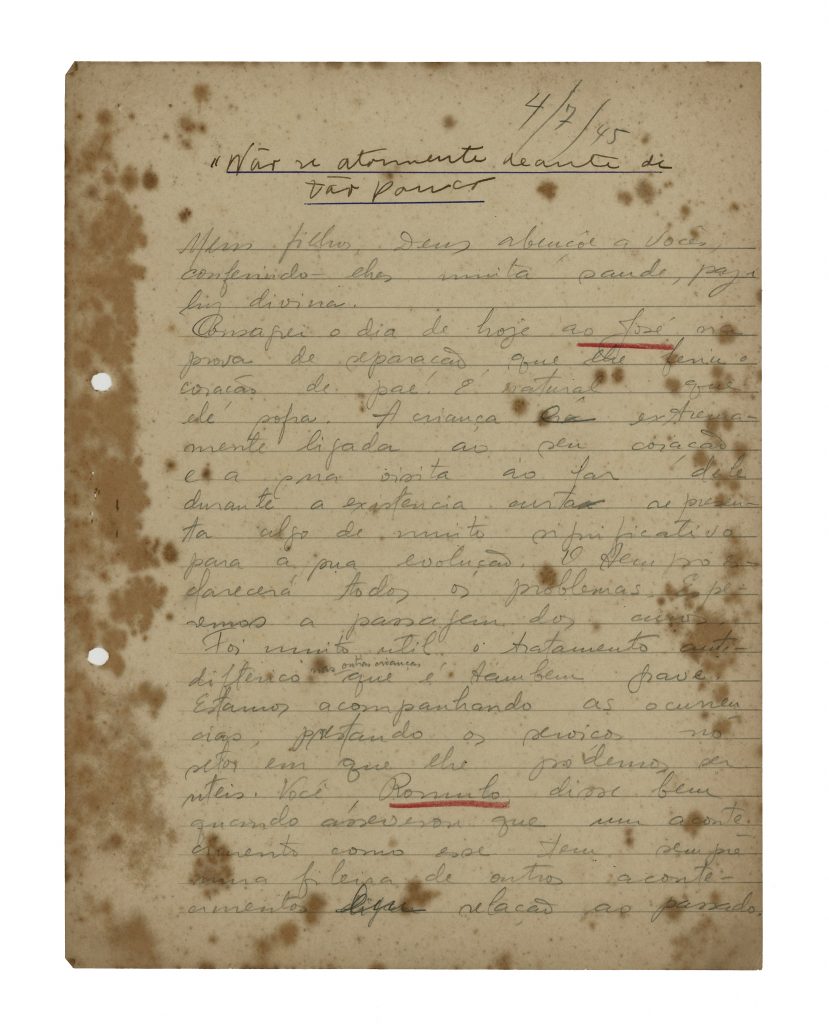 4/7/45
"Não se atormente deante de
tão pouco
Meus filhos, Deus abençôe a Vocês,
conferindo-lhes muita saude, paz e
luz divina.
Consagrei o dia de hoje ao José, na
prova de separação, que lhe feriu o
coração de pae. É natural que
ele sofra. A criança extrema-
mente ligada ao seu coração
e a sua visita ao lar dele
durante a existencia curta represen-
ta algo de muito significativo
para a sua evolução. O tempo es-
clarecerá todos os problemas. Espe-
remos a passagem dos anos.
Foi muito util o tratamento anti-
difterico nas outras crianças que é tambem grave.
Estamos acompanhando as ocurren
cias, prestando os serviços no
setor em que lhe podemos ser
uteis. Você Romulo, disse bem
quando asseverou que um aconte-
cimento como esse tem sempre
uma fileira de outros aconte-
cimentos relação ao passado.